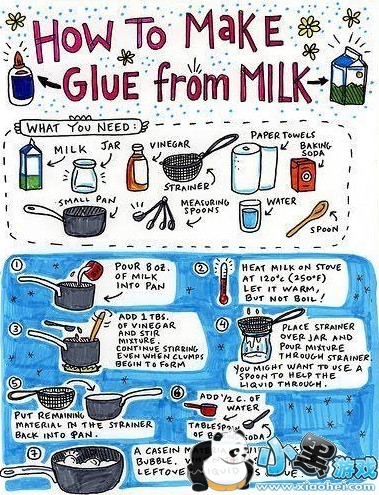 HOW TO MAKE
GLUE from MILK
WHAT YOU NEED:
MILK
JAR
VINEGAR
STRAINER
PAPER TOWELS
BAKING
SODA
SMALL PAN
MEASURING
SPOONS
WATER
SPOON
1
POUR 8 OZ.
OF MILK
INTO PAN
2
HEAT MILK ON STOVE
AT 120°C (250°F)
LET IT WARM,
BUT NOT BOIL!
3
ADD 1 TBS.
OF VINEGAR
AND STIR
MIXTURE.
CONTINUE STIRRING
EVEN WHEN CLUMPS
BEGIN TO FORM
4
PLACE STRAINER
OVER JAR AND
POUR MIXTURE
THROUGH STRAINER.
YOU MIGHT WANT TO USE A
SPOON TO HELP THE
LIQUID THROUGH.
5
PUT REMAINING
MATERIAL IN THE STRAINER
BACK INTO PAN.
6
ADD ½ C. OF
WATER
TABLESP
OF B
7
A CASEIN
BUBBLE,
LEFTOVE
小黑游戏
www.xiaohei.com